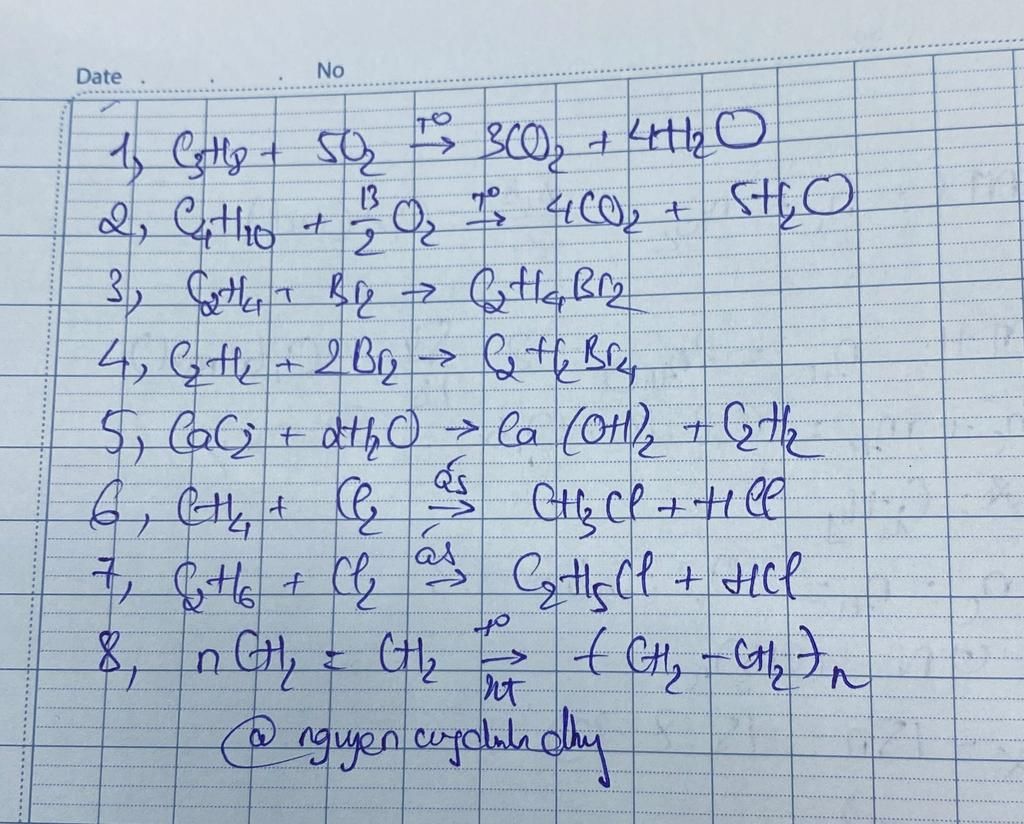 Date . . . No
1, C₃H₈ + 5O₂ →(t°) 3CO₂ + 4H₂O
2, C₄H₁₀ + 13/2 O₂ →(t°) 4CO₂ + 5H₂O
3, C₂H₄ + Br₂ → C₂H₄Br₂
4, C₂H₂ + 2Br₂ → C₂H₂Br₄
5, CaC₂ + 2H₂O → Ca(OH)₂ + C₂H₂
6, CH₄ + Cl₂ →(ás) CH₃Cl + HCl
7, C₂H₆ + Cl₂ →(ás) C₂H₅Cl + HCl
8, nCH₂ = CH₂ →(t°, xt) (CH₂ – CH₂)n
@ nguyen